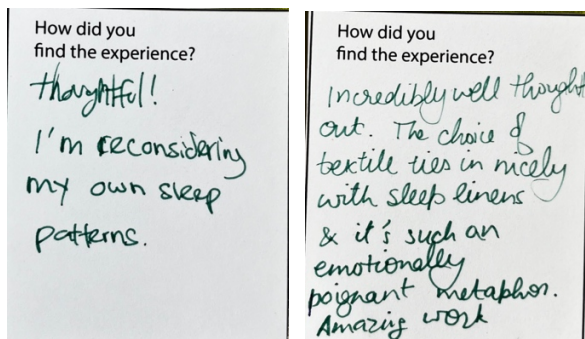 How did you
find the experience?
thoughtful!
I'm reconsidering
my own sleep
patterns.
How did you
find the experience?
Incredibly well thought
out. The choice of
textile ties in nicely
with sleep linens
& it's such an
emotionally
poignant metaphor.
Amazing work